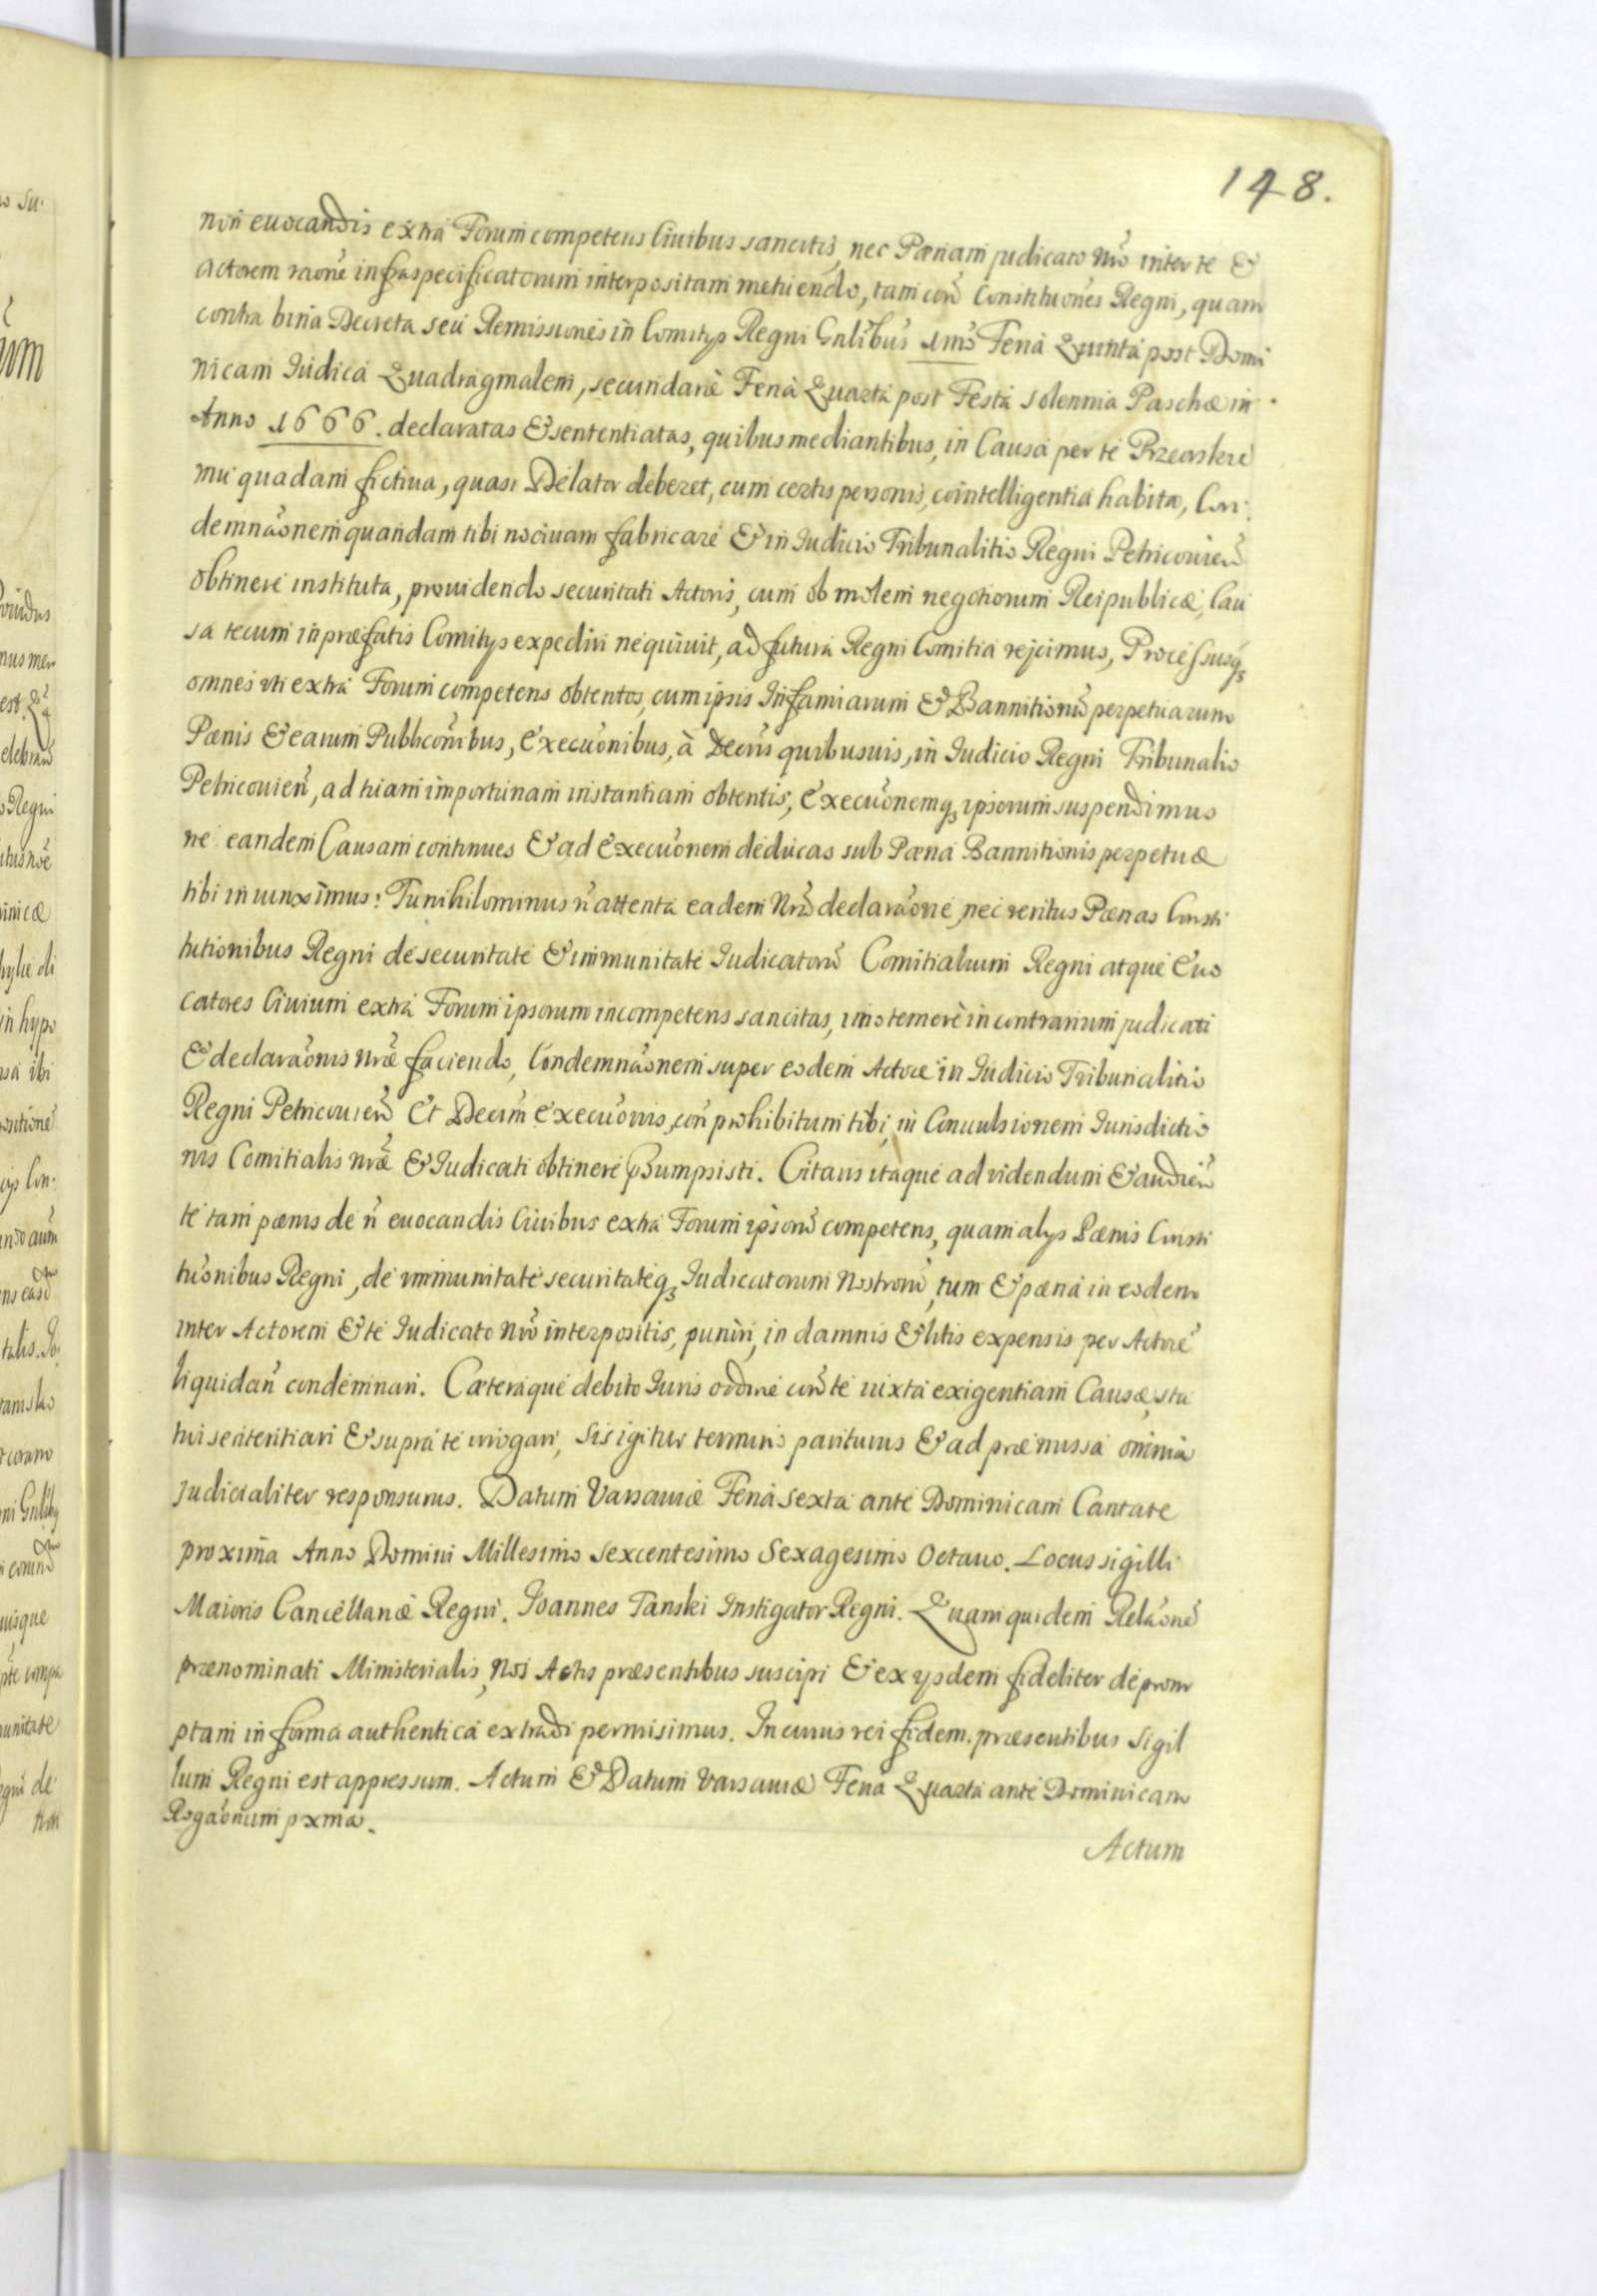 148.
non euocandis extra Forum competens Ciuibus sancitis, nec Pœnam judicato nrõ inter te &
Actorem raõne infraspecificatorum interpositam metuendo, tam con̄ Constituones Regni, quam
contra bina Decreta seu Remissiones in Comitijs Regni Gnlibus 1mo Feria Quinta post Domi
nicam Iudica Quadragmalem, secundariè Feria Quarta post Festa solennia Paschæ in
Anno 1666. declaratas & sententiatas, quibus mediantibus, in Causa per te
mu quadam fictiua, quasi Delator deberet, cum certis personis, cointelligentia habita, Con:
demnãonem quandam tibi nociuam fabricare & in Iudicio Tribunalitio Regni Petricouien̄
obtinere instituta, prouidendo securitati Actoris, cum ob molem negotiorum Reipublicæ, Cau
sa tecum in præfatis Comitijs expediri nequiuit, ad futura Regni Comitia rejcimus, Processusq;
omnes vti extra Forum competens obtentos, cum ipsis Infamiarum & Bannitionũ perpetuarum
Pœnis & earum Publicõnibus, Execuõnibus, à Decris quibusuis, in Iudicio Regni Tribunalio
Petricouien̄, ad tuam importunam instantiam obtentis, Execuõnemq; ipsorum suspendimus
ne eandem Causam continues & ad Execuõnem deducas sub Pœna Bannitionis perpetuæ
tibi iniunximus: Tu nihilominus ñ attenta eadem Nrã declarãone, nec veritus Pœnas Consti
tutionibus Regni de securitate & immunitate Iudicatorũ Comitialium Regni atque Euo
catores Ciuium extra Forum ipsorum incompetens sancitas, imo temerè in contrarium judicati
& declarãonis nræ faciendo, Condemnãonem super eodem Actore in Iudicio Tribunalitio
Regni Petricouien̄ Et Decrm̃ Execuõnis, con̄ prohibitum tibi, in Conuulsionem Iurisdictio
nis Comitialis nræ & Iudicati obtinere psumpsisti. Citaris itaque ad videndum & audien̄
te tam pœnis de ñ euocandis Ciuibus extra Forum ipsorũ competens, quam alijs Pœnis Consti
tuõnibus Regni, de immunitate securitateq; Iudicatorum Nostrorũ, tum & pœna in eodem
inter Actorem & te Iudicato nrõ interpositis, puniri, in damnis & litis expensis per Actorẽ
liquidan̄ condemnari. Cæteraque debito Iuris ordine con̄ te iuxta exigentiam Causæ, sta
tui sententiari & supra te irrogari, sis igitur terminò pariturus & ad præmissa omnia
judicialiter responsurus. Datum Varsauiæ Feria Sexta ante Dominicam Cantate
proxima Anno Domini Millesimo Sexcentesimo Sexagesimo Octauo. Locus sigilli
Maioris Cancellariæ Regni. Ioannes Tanski Instigator Regni. Quam quidem Relãonẽ
prænominati Ministerialis, Nos Actis præsentibus suscipi & ex ijsdem fideliter deprom
ptam in forma authentica extradi permisimus. In cuius rei fidem præsentibus Sigil
lum Regni est appressum. Actum & Datum Varsauiæ Feria Quarta ante Dominicam
Rogãonum pxma.
Actum